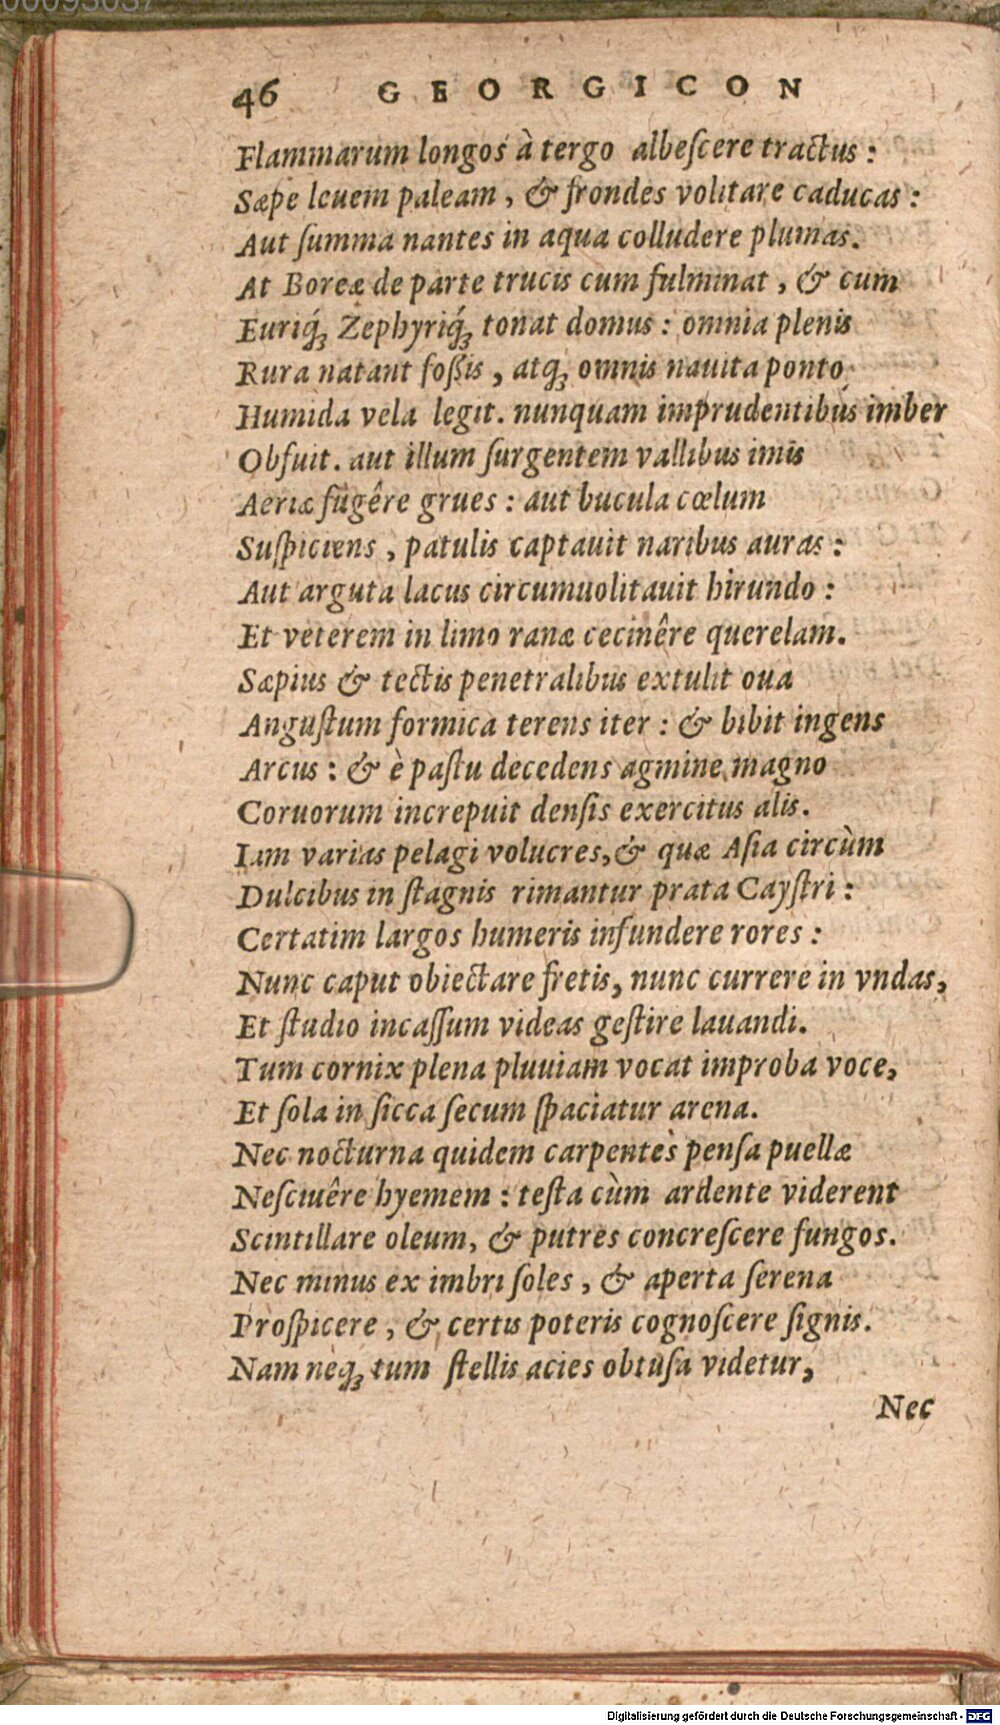 46 GEORGICON
Flammarum longos à tergo albeſcere tractus :
Sæpe leuem paleam, & frondes volitare caducas :
Aut ſumma nantes in aqua colludere plumas.
At Boreæ de parte trucis cum fulminat, & cum
Euriq́ꝫ Zephyriq́ꝫ tonat domus : omnia plenis
Rura natant foßis, atqꝫ omnis nauita ponto
Humida vela legit. nunquam imprudentibus imber
Obfuit. aut illum ſurgentem vallibus imis
Aeriæ fugêre grues : aut bucula cœlum
Suſpiciens, patulis captauit naribus auras :
Aut arguta lacus circumuolitauit hirundo :
Et veterem in limo ranæ cecinêre querelam.
Sæpius & tectis penetralibus extulit oua
Anguſtum formica terens iter : & bibit ingens
Arcus : & è paſtu decedens agmine magno
Coruorum increpuit denſis exercitus alis.
Iam varias pelagi volucres, & quæ Aſia circùm
Dulcibus in ſtagnis rimantur prata Cayſtri :
Certatim largos humeris infundere rores :
Nunc caput obiectare fretis, nunc currere in vndas,
Et ſtudio incaſſum videas geſtire lauandi.
Tum cornix plena pluuiam vocat improba voce,
Et ſola in ſicca ſecum ſpaciatur arena.
Nec nocturna quidem carpentes penſa puellæ
Neſciuêre hyemem : teſta cùm ardente viderent
Scintillare oleum, & putres concreſcere fungos.
Nec minus ex imbri ſoles, & aperta ſerena
Proſpicere, & certis poteris cognoſcere ſignis.
Nam neqꝫ tum ſtellis acies obtuſa videtur,
Nec
Digitalisierung gefördert durch die Deutsche Forschungsgemeinschaft - DFG